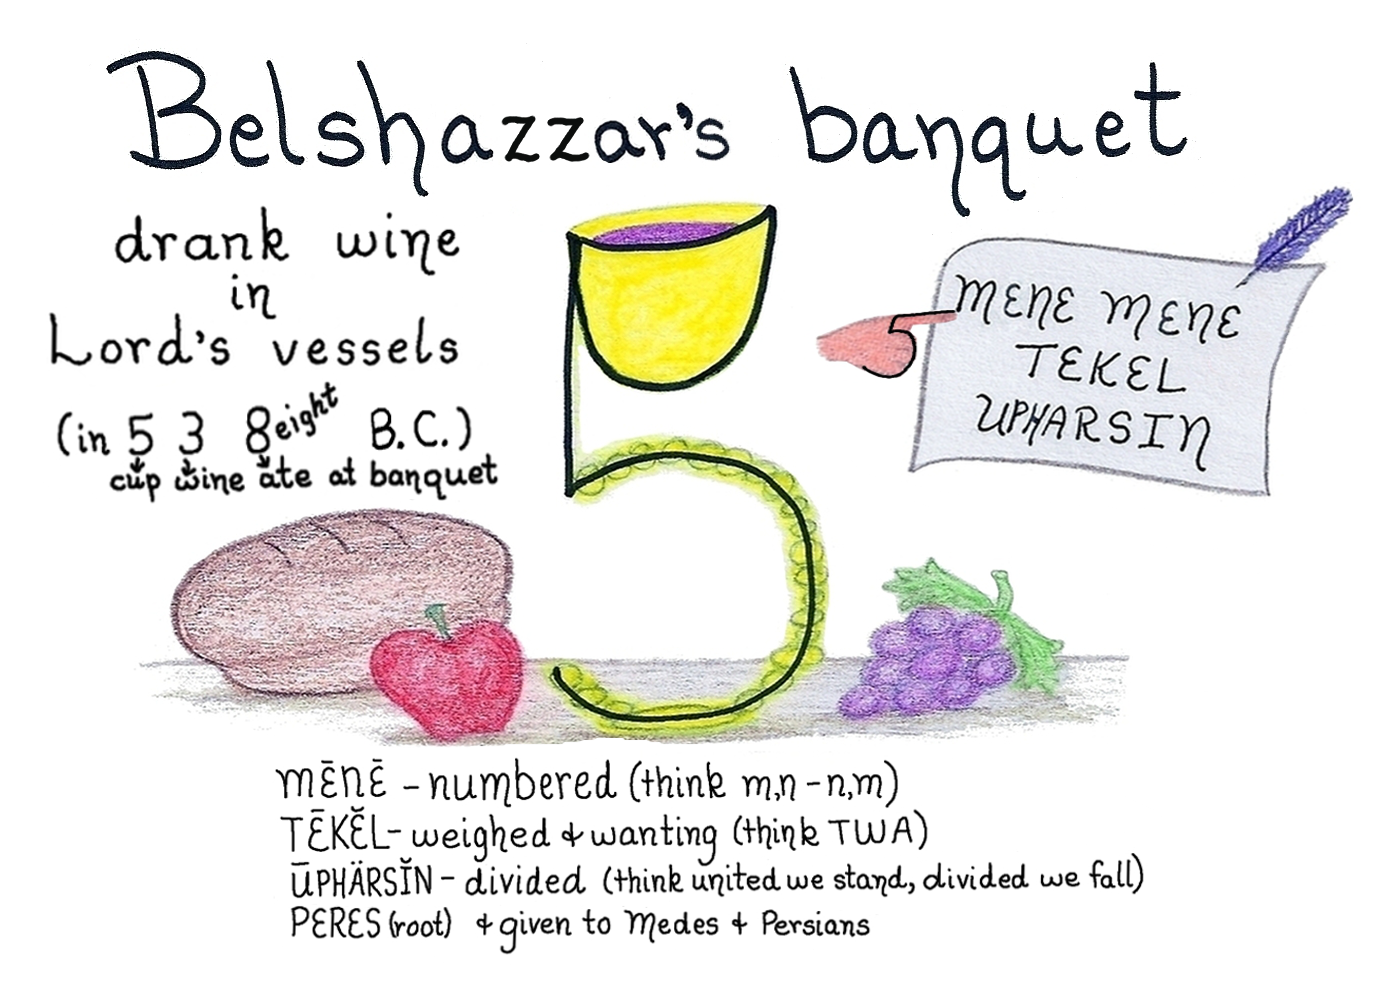 Belshazzar's banquet
drank wine
in
Lord's vessels
(in 5 3 8eight B.C.)
cup wine ate at banquet
5
MENE MENE
TEKEL
UPHARSIN
MĒNĒ – numbered (think m,n – n,m)
TĒKĔL – weighed & wanting (think TWA)
ŪPHÄRSĬN – divided (think united we stand, divided we fall)
PERES (root) & given to Medes & Persians